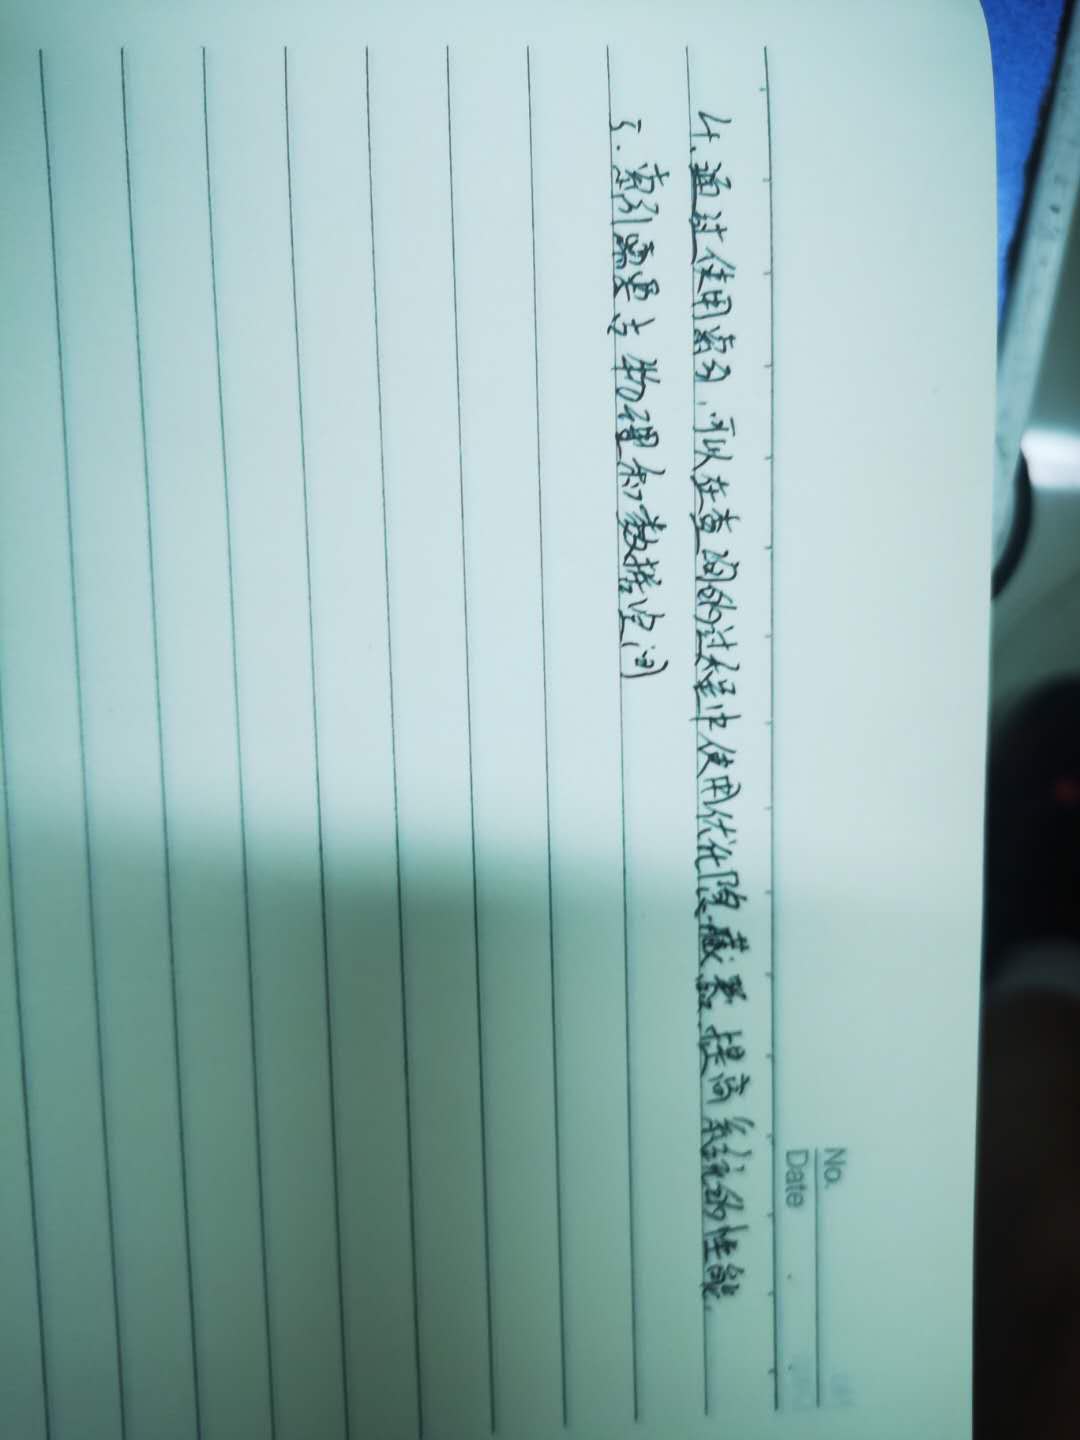 No.
Date
4.通过使用索引,可以在查询的过程中使用优化隐藏器.提高系统的性能.
5.索引需要占物理和数据空间